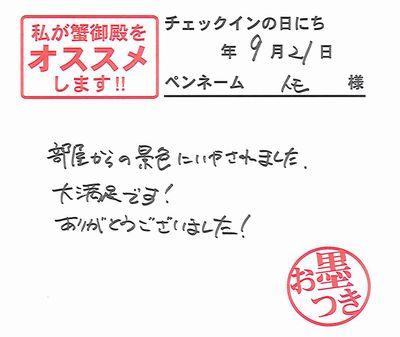 私が蟹御殿を
オススメ
します!!
チェックインの日にち
年 9月21日
ペンネーム 様
部屋からの景色にいやされました.
大満足です!
ありがとうございました!
お墨
つき